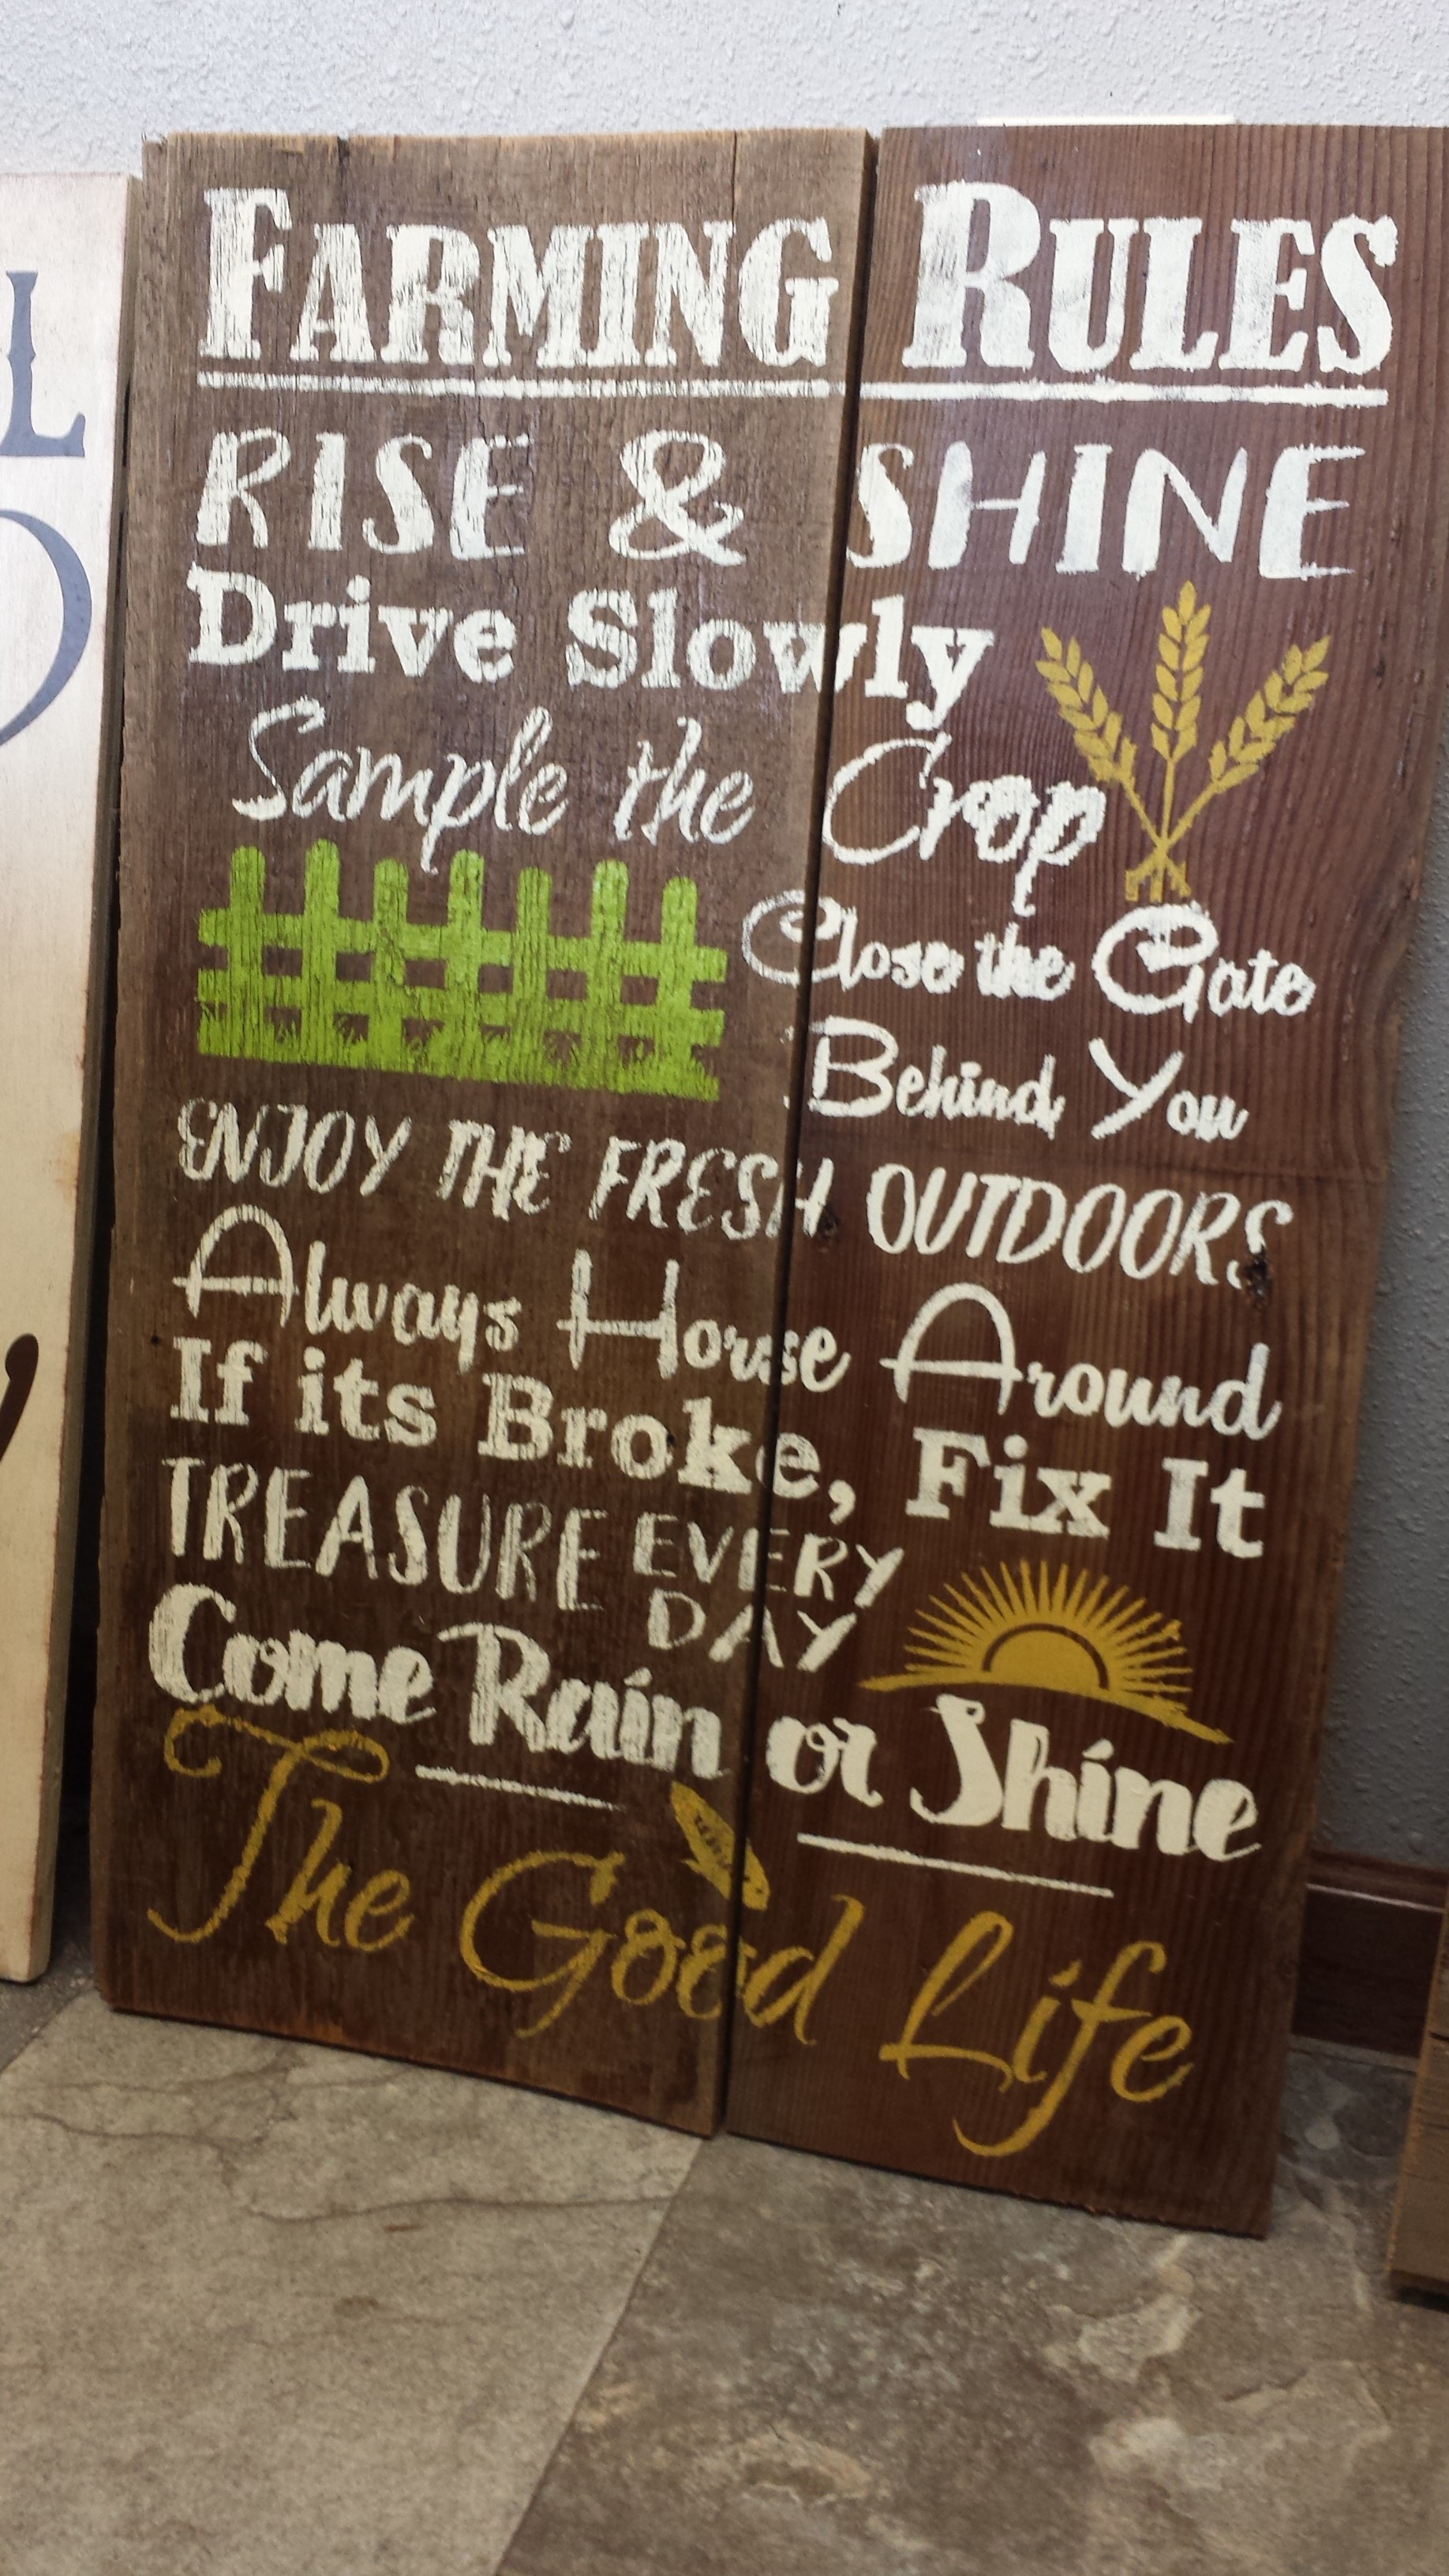 FARMING RULES
RISE & SHINE
Drive Slowly
Sample the Crop
Close the Gate
Behind You
ENJOY THE FRESH OUTDOORS
Always Horse Around
If its Broke, Fix It
TREASURE EVERY
DAY
Come Rain or Shine
The Good Life